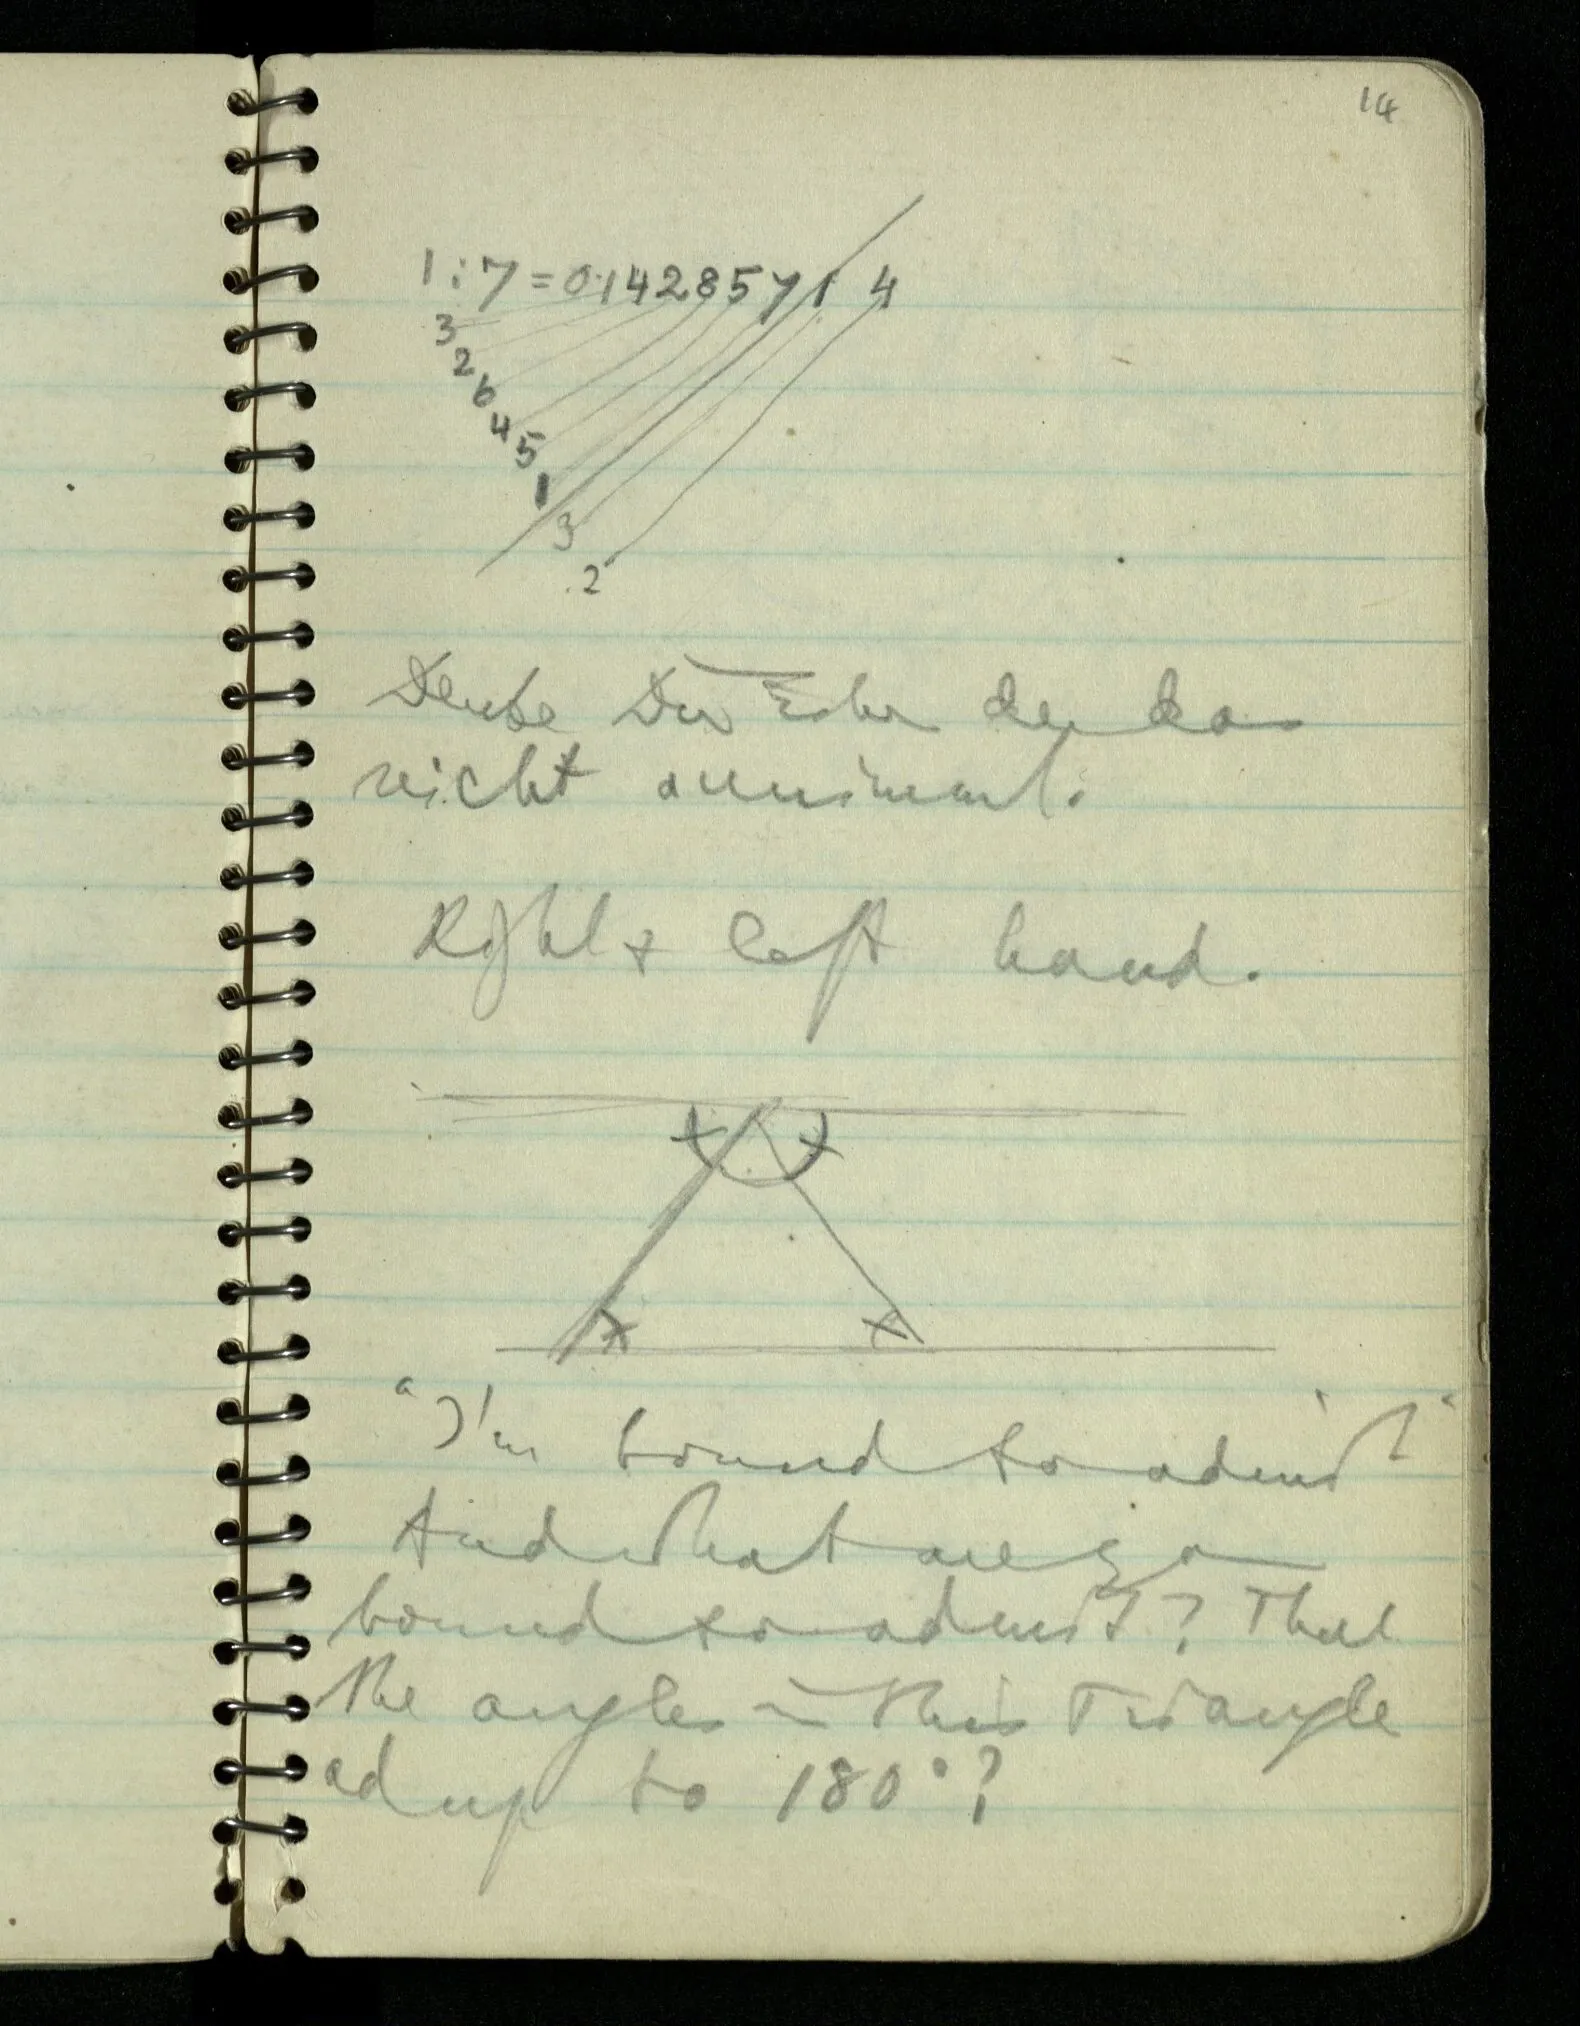 14
1:7=0·14285714
3
2
6
4
5
1
3
2
Denke Dir Einen der das
nicht annimmt.
Right & left hand.
"I'm bound to admit"
And what are you
bound to admit? That
the angles in this triangle
ad up to 180°?